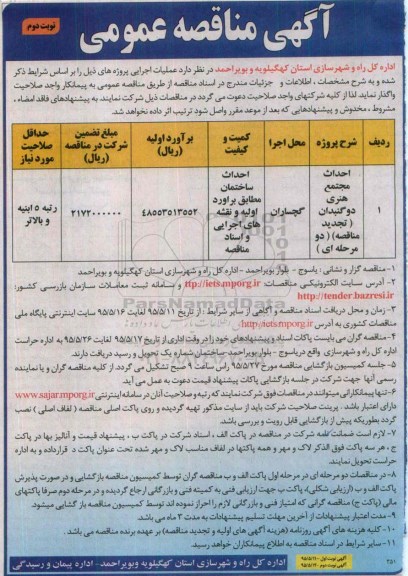 آگهی مناقصه عمومی
نوبت دوم
اداره کل راه و شهرسازی استان کهگیلویه و بویراحمد در نظر دارد عملیات اجرایی پروژه های ذیل را بر اساس شرایط ذکر
شده و به شرح مشخصات ، اطلاعات و جزئیات مندرج در اسناد مناقصه از طریق مناقصه عمومی به پیمانکار واجد صلاحیت
واگذار نماید. لذا از کلیه شرکتهای واجد صلاحیت دعوت می گردد در مناقصات ذیل شرکت نمایند. به پیشنهادهای فاقد امضاء ،
مشروط ، مخدوش و پیشنهادهایی که بعد از موعد مقرر واصل شود ترتیب اثر داده نخواهد شد.
ردیف
شرح پروژه
محل اجرا
کمیت و کیفیت
برآورد اولیه (ریال)
مبلغ تضمین شرکت در مناقصه (ریال)
حداقل صلاحیت مورد نیاز
۱
احداث مجتمع هنری دوگنبدان ( تجدید مناقصه) ( دو مرحله ای )
گچساران
احداث ساختمان مطابق براورد اولیه و نقشه های اجرایی و اسناد مناقصه
۴۸۵۵۳۵۱۳۵۵۲
۲۱۷۲۰۰۰۰۰۰
رتبه ۵ ابنیه و بالاتر
۱- مناقصه گزار و نشانی : یاسوج - بلوار بویراحمد - اداره کل راه و شهرسازی استان کهگیلویه و بویراحمد
۲- آدرس سایت الکترونیکی مناقصات: ftp://iets.mporg.ir و سامانه ثبت معاملات سازمان بازرسی کشور:
http://tender.bazresi.ir
۳- زمان و محل دریافت اسناد مناقصه و آگهی از سایر شرایط : از تاریخ ۹۵/۵/۱۱ لغایت ۹۵/۵/۱۶ سایت اینترنتی پایگاه ملی
مناقصات کشوری به آدرس http:iets.mporg.ir
۴- مناقصه گران می بایست پاکات اسناد و پیشنهادهای خود را در وقت اداری از تاریخ ۹۵/۵/۱۷ لغایت ۹۵/۵/۲۶ به اداره حراست
اداره کل راه و شهرسازی واقع در یاسوج - بلوار بویراحمد - ساختمان شماره یک تحویل و رسید دریافت دارند.
۵- جلسه کمیسیون بازگشایی مناقصه مورخ ۹۵/۵/۲۷ راس ساعت ۹ صبح تشکیل می گردد. از کلیه مناقصه گران و یا نماینده
رسمی آنها جهت شرکت در جلسه بازگشایی پاکات پیشنهاد قیمت دعوت به عمل می آید.
۶- تنها پیمانکارانی میتوانند در مناقصات فوق شرکت نمایند که رتبه و صلاحیت آنان در سامانه اینترنتی www.sajar.mporg.ir
دارای اعتبار باشد . پرینت صلاحیت شرکت باید از سایت مذکور تهیه گردیده و روی پاکت اصلی مناقصه ( لفاف اصلی ) نصب
گردد بطوریکه پیش از بازگشایی قابل رویت و بررسی باشد.
۷- لازم است ضمانت نامه شرکت در مناقصه در پاکت الف ، اسناد شرکت در پاکت ب ، پیشنهاد قیمت و آنالیز بها در پاکت
ج ، هر سه پاکت فوق الذکر لاک و مهر و همه پاکتها در لفاف مناسب لاک و مهر شده تحت عنوان پاکت د قرارداده و به اداره
حراست تحویل نمایند.
۸- در مناقصات دو مرحله ای در مرحله اول پاکت الف و ب مناقصه گران توسط کمیسیون مناقصه بازگشایی و در صورت پذیرش
پاکت الف و ب (ارزیابی شکلی)، پاکت ب جهت ارزیابی فنی به کمیته فنی و بازرگانی ارجاع گردیده و در مرحله دوم صرفا پاکتهای
مالی (پاکت ج) مناقصه گرانی که امتیاز فنی و بازرگانی لازم را احراز نموده اند توسط کمیسیون مناقصه بازگشایی میشود.
۹- مدت اعتبار پیشنهادات از آخرین مهلت تسلیم پیشنهادات به مدت ۳ ماه می باشد.
۱۰- کلیه هزینه های آگهی روزنامه (هزینه آگهی های اولیه و تجدید مناقصه) بر عهده برنده مناقصه می باشد.
۱۱- سایر شرایط در اسناد مناقصه به اطلاع پیمانکاران خواهد رسید.
۲۵۱
اداره کل راه و شهرسازی استان کهگیلویه وبویراحمد - اداره پیمان و رسیدگی
آگهی نوبت اول ۹۵/۵/۱۰
آگهی نوبت دوم ۹۵/۵/۱۲
ParsNamadData